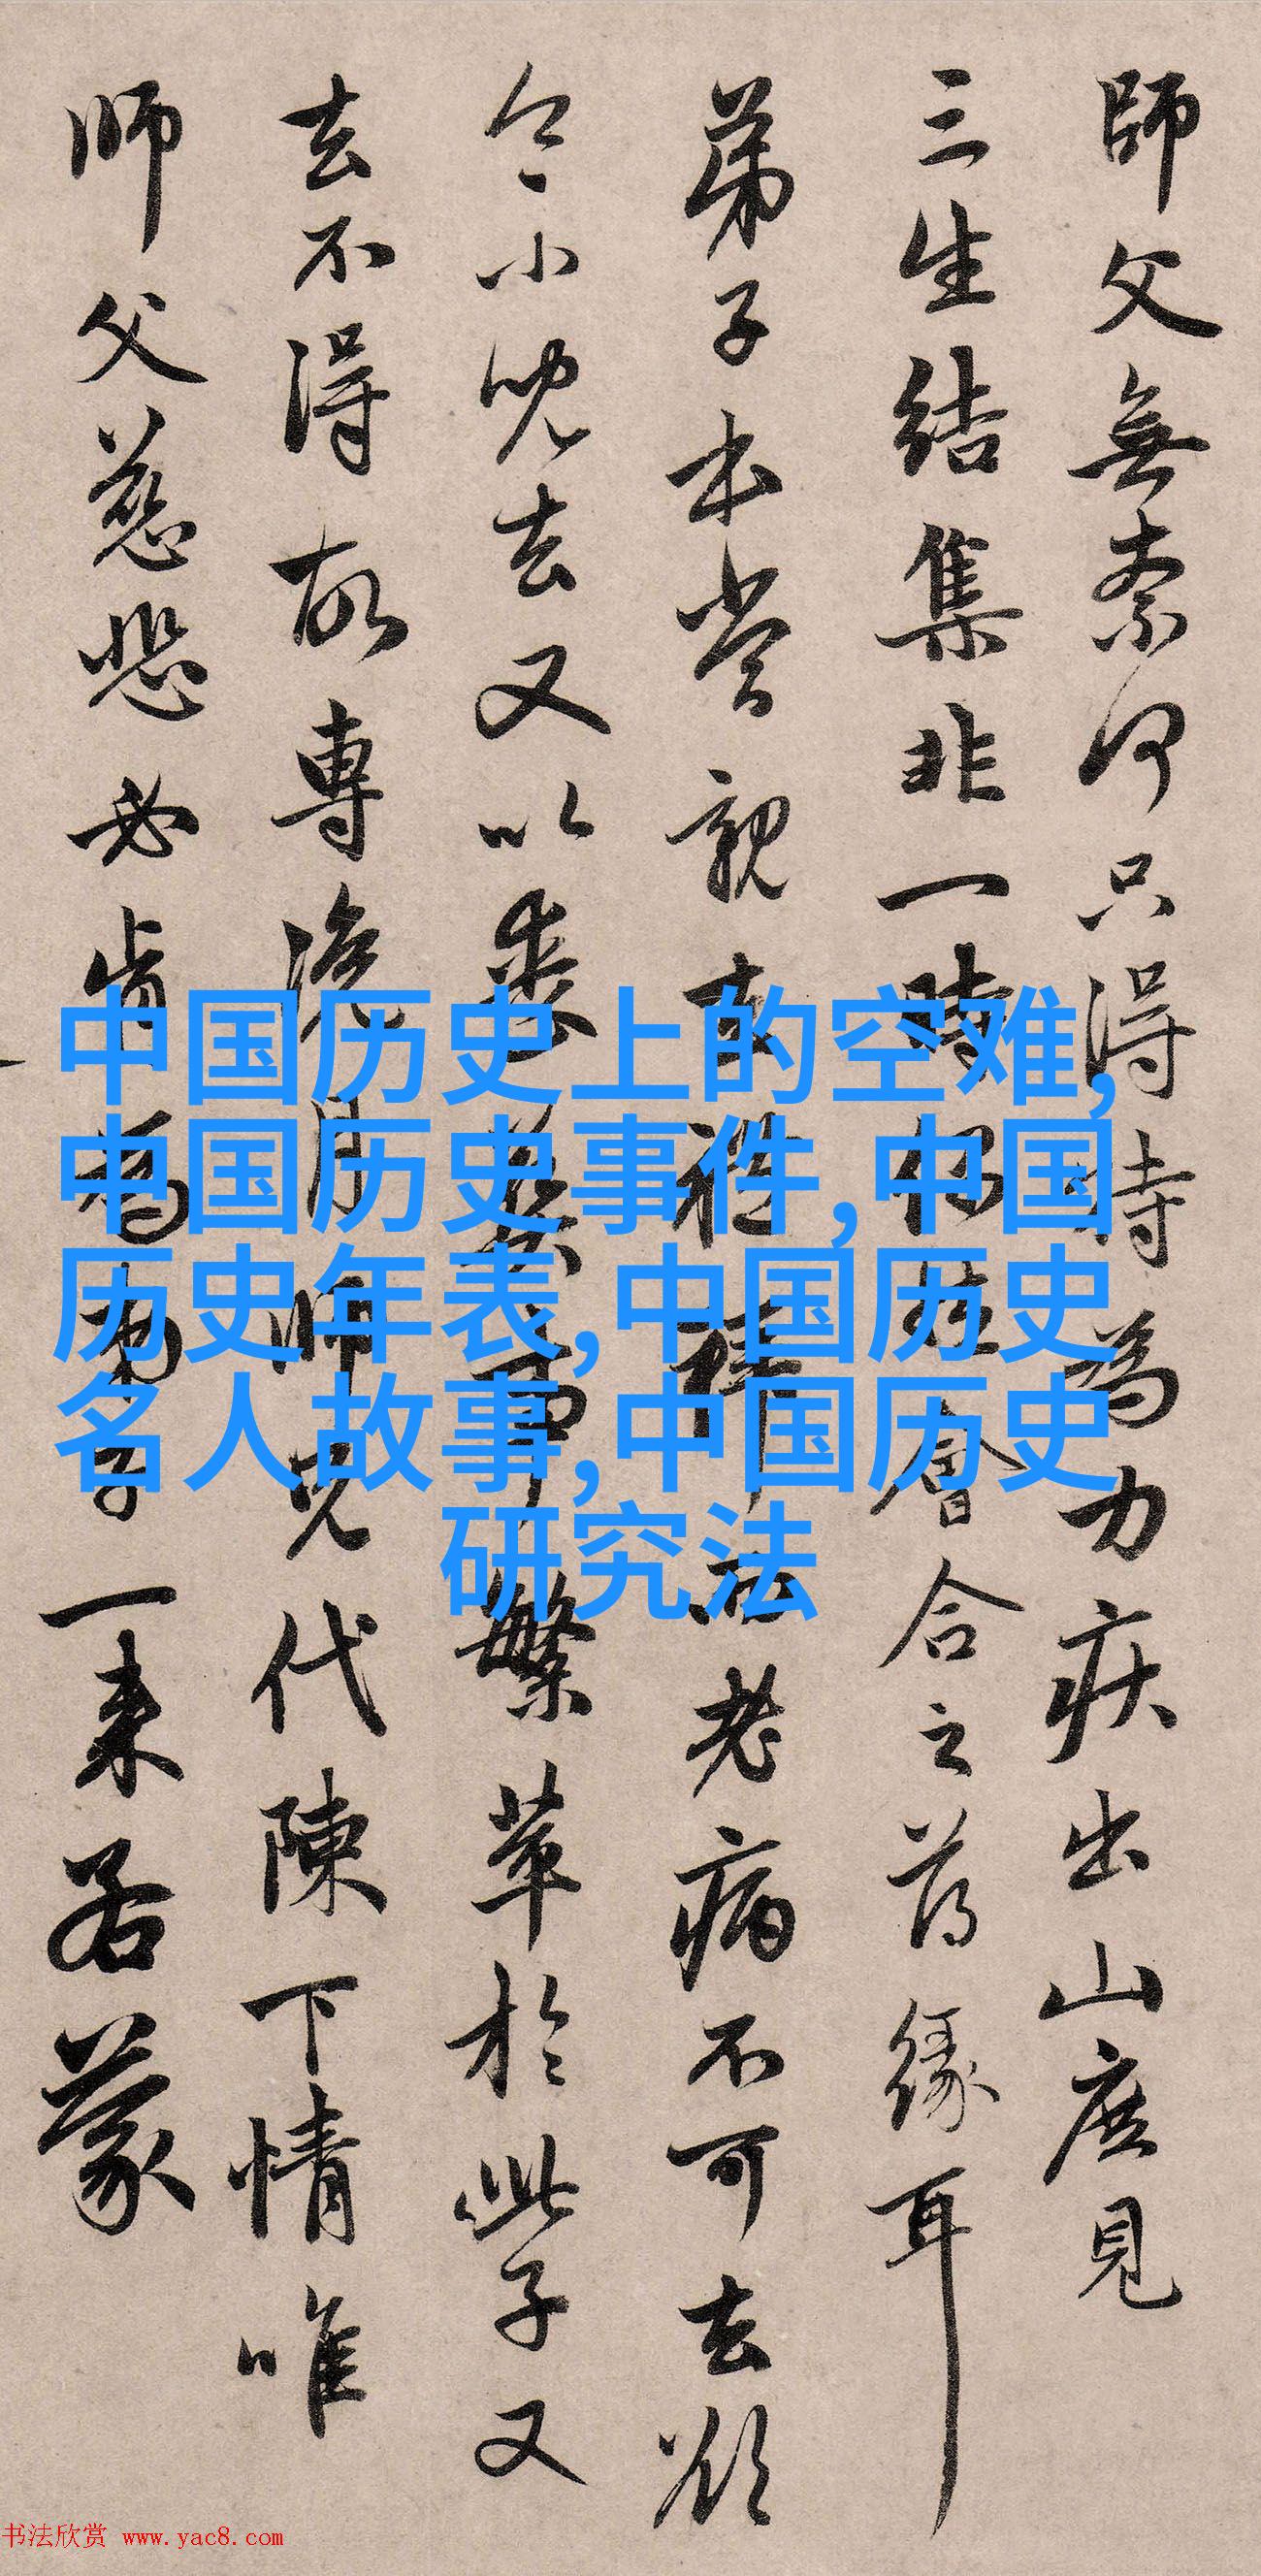 師父無奈何只得特為力疾出山庶見
三生結集非一時
會合之薄緣耳
弟子本當親
老病不可去欲
令小兒去又以
繁萃於此子又
去不得故專
師兄代陳下情唯
師父慈悲必肯為
一來若蒙
中国历史上的空难,
中国历史事件,中国
历史年表,中国历史
名人故事,中国历史
研究法
书法欣赏 www.yac8.com